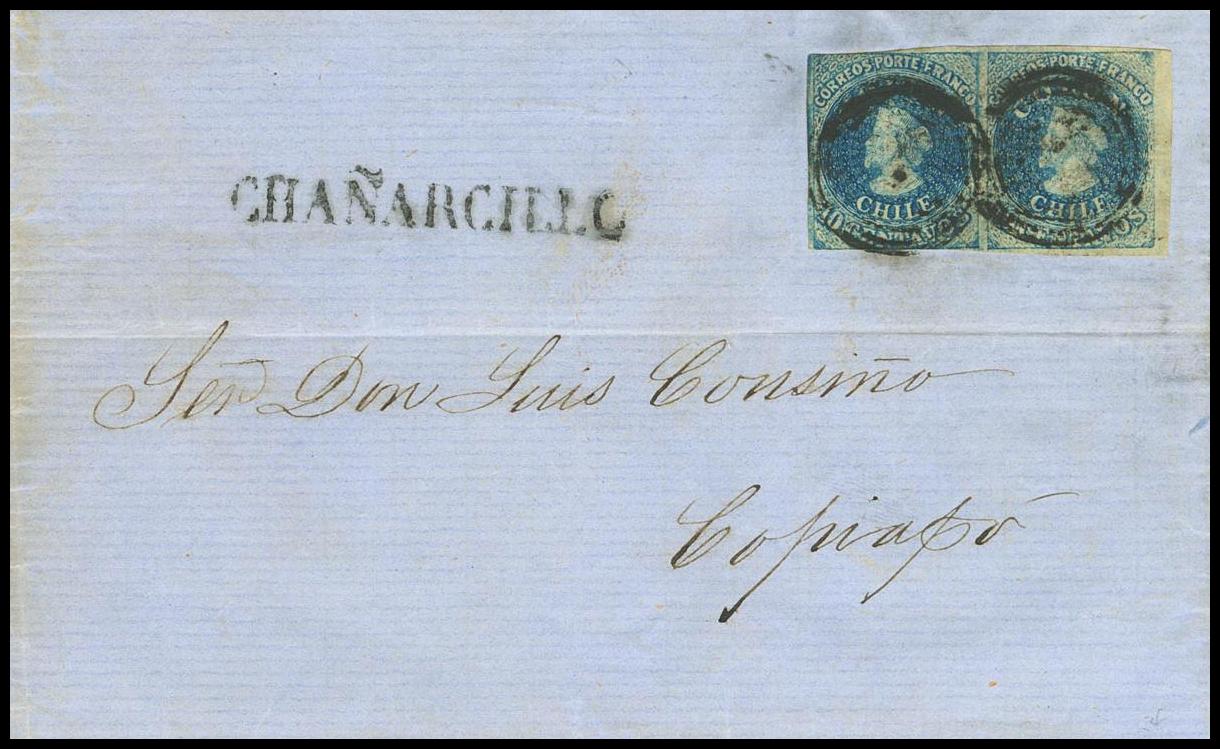 CORREOS PORTE FRANCO
CHILE
10 CENTAVOS
CORREOS PORTE FRANCO
CHILE
CENTAVOS
CHAÑARCILLO
Señ Don Luis Consiño
Copiapó